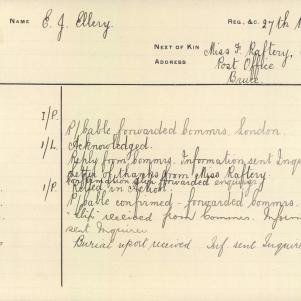 NAME E. J. Ellery. REG. &C. 27th
NEXT OF KIN Miss F. Raftery,
ADDRESS Post Office
Bruce.
I/P. P/ Cable forwarded Commrs. London.
1/L. Acknowledged.
Reply from Commrs. Information sent
Letter of thanks from Miss Raftery.
Confirmation slip forwarded enquirer
1/P "Killed in Action"
P/ Cable confirmed - forwarded Commrs.
"Slip" received from Commrs.
sent Inquirer
Burial report received Inf. sent